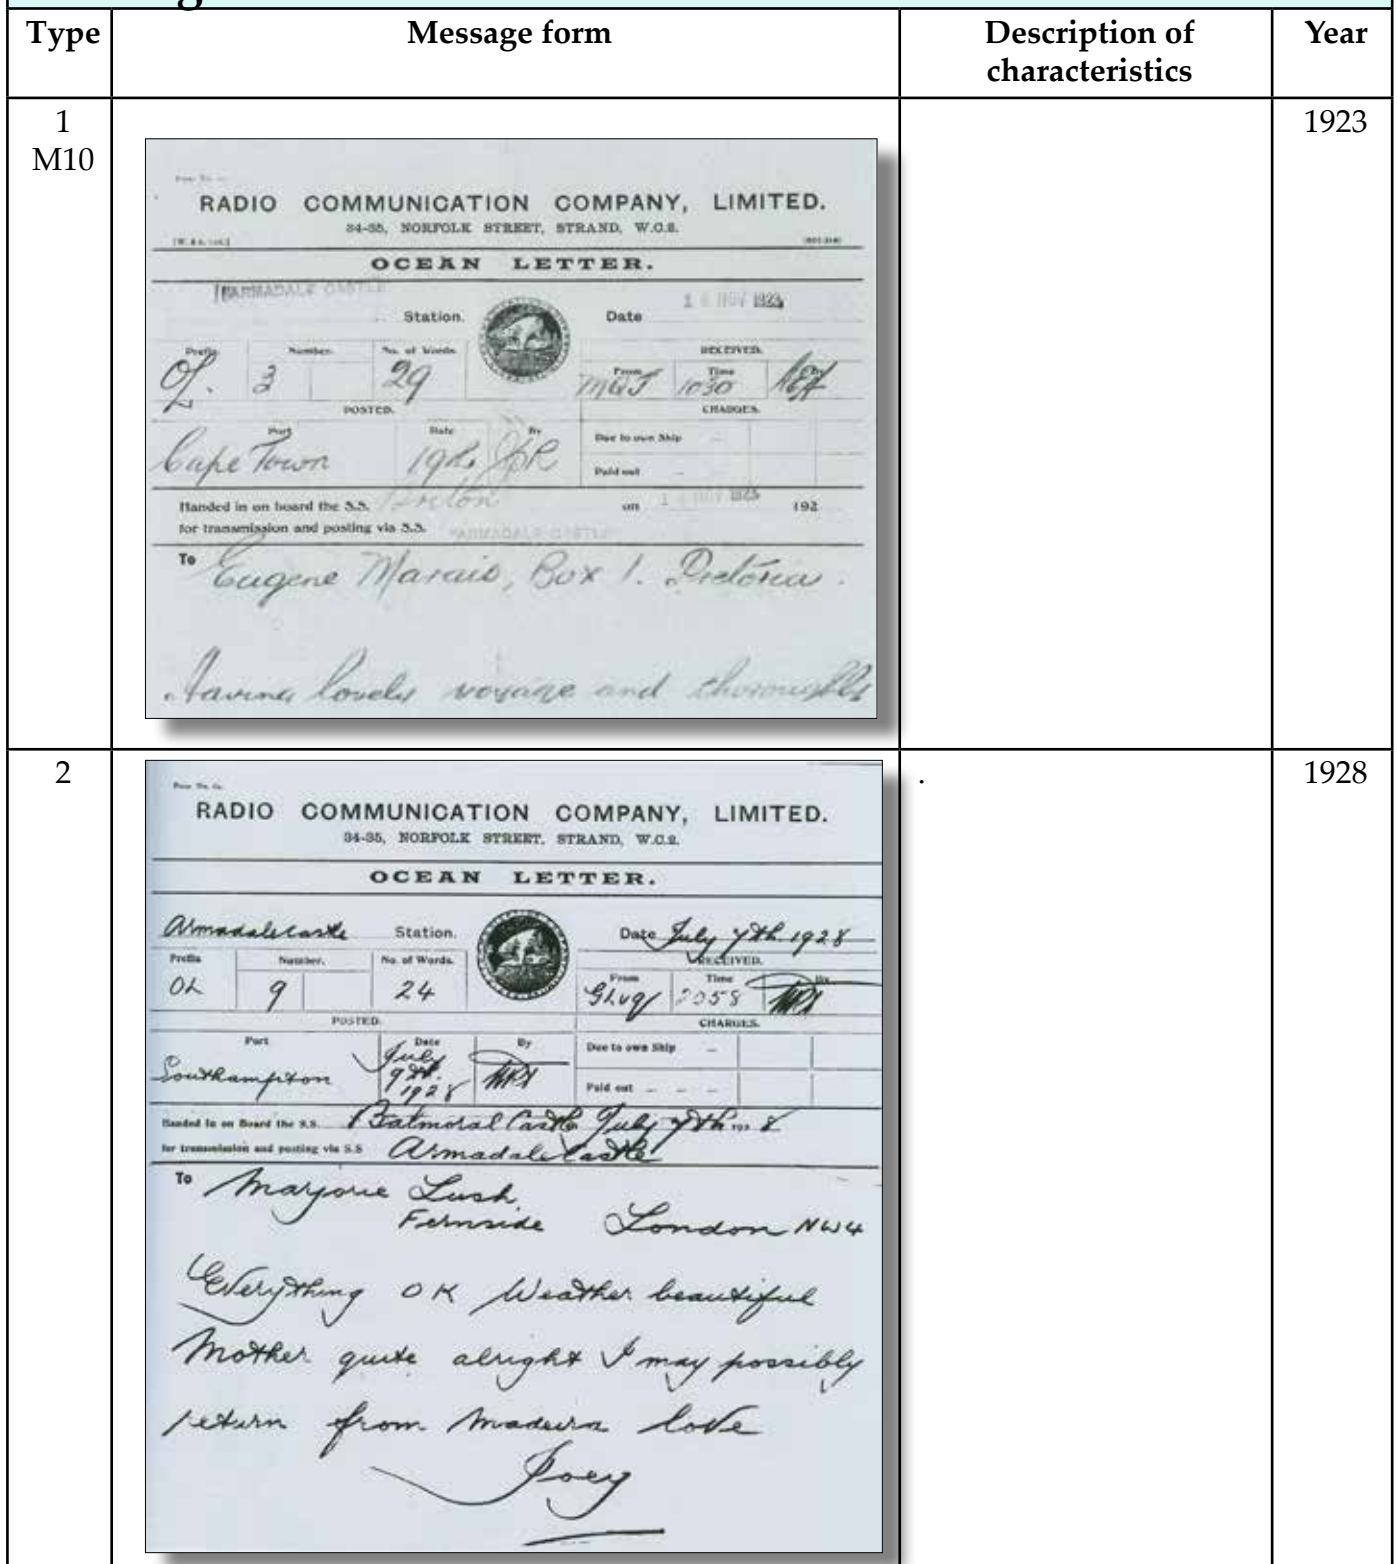 Type Message form Description of characteristics Year
1
M10
1923
RADIO COMMUNICATION COMPANY, LIMITED.
34-35, NORFOLK STREET, STRAND, W.C.2.
OCEAN LETTER.
ARMADALE CASTLE
Station. Date NOV 1923
Prefix Number. No. of Words. RECEIVED.
From Time By
OL. 3 29 MQJ 1030
POSTED. CHARGES.
Port Date By Due to own Ship
Cape Town 19th Paid out
Handed in on board the S.S. on NOV 1923 192
for transmission and posting via S.S. ARMADALE CASTLE
To Eugene Marais, Box 1. Pretoria.
Having lovely voyage and thoroughly
2
.
1928
RADIO COMMUNICATION COMPANY, LIMITED.
34-35, NORFOLK STREET, STRAND, W.C.2.
OCEAN LETTER.
Armadale Castle Station. Date July 7th 1928
Prefix Number. No. of Words. RECEIVED.
From Time By
OL 9 24 2058
POSTED. CHARGES.
Port Date By Due to own Ship
Southampton July 9th. 1928 Paid out
Handed in on Board the S.S. Balmoral Castle July 7th 192 8
for transmission and posting via S.S Armadale Castle
To Marjorie Lush
Fernside London NW4
Everything OK Weather beautiful
Mother quite alright I may possibly
return from Madeira love
Joey